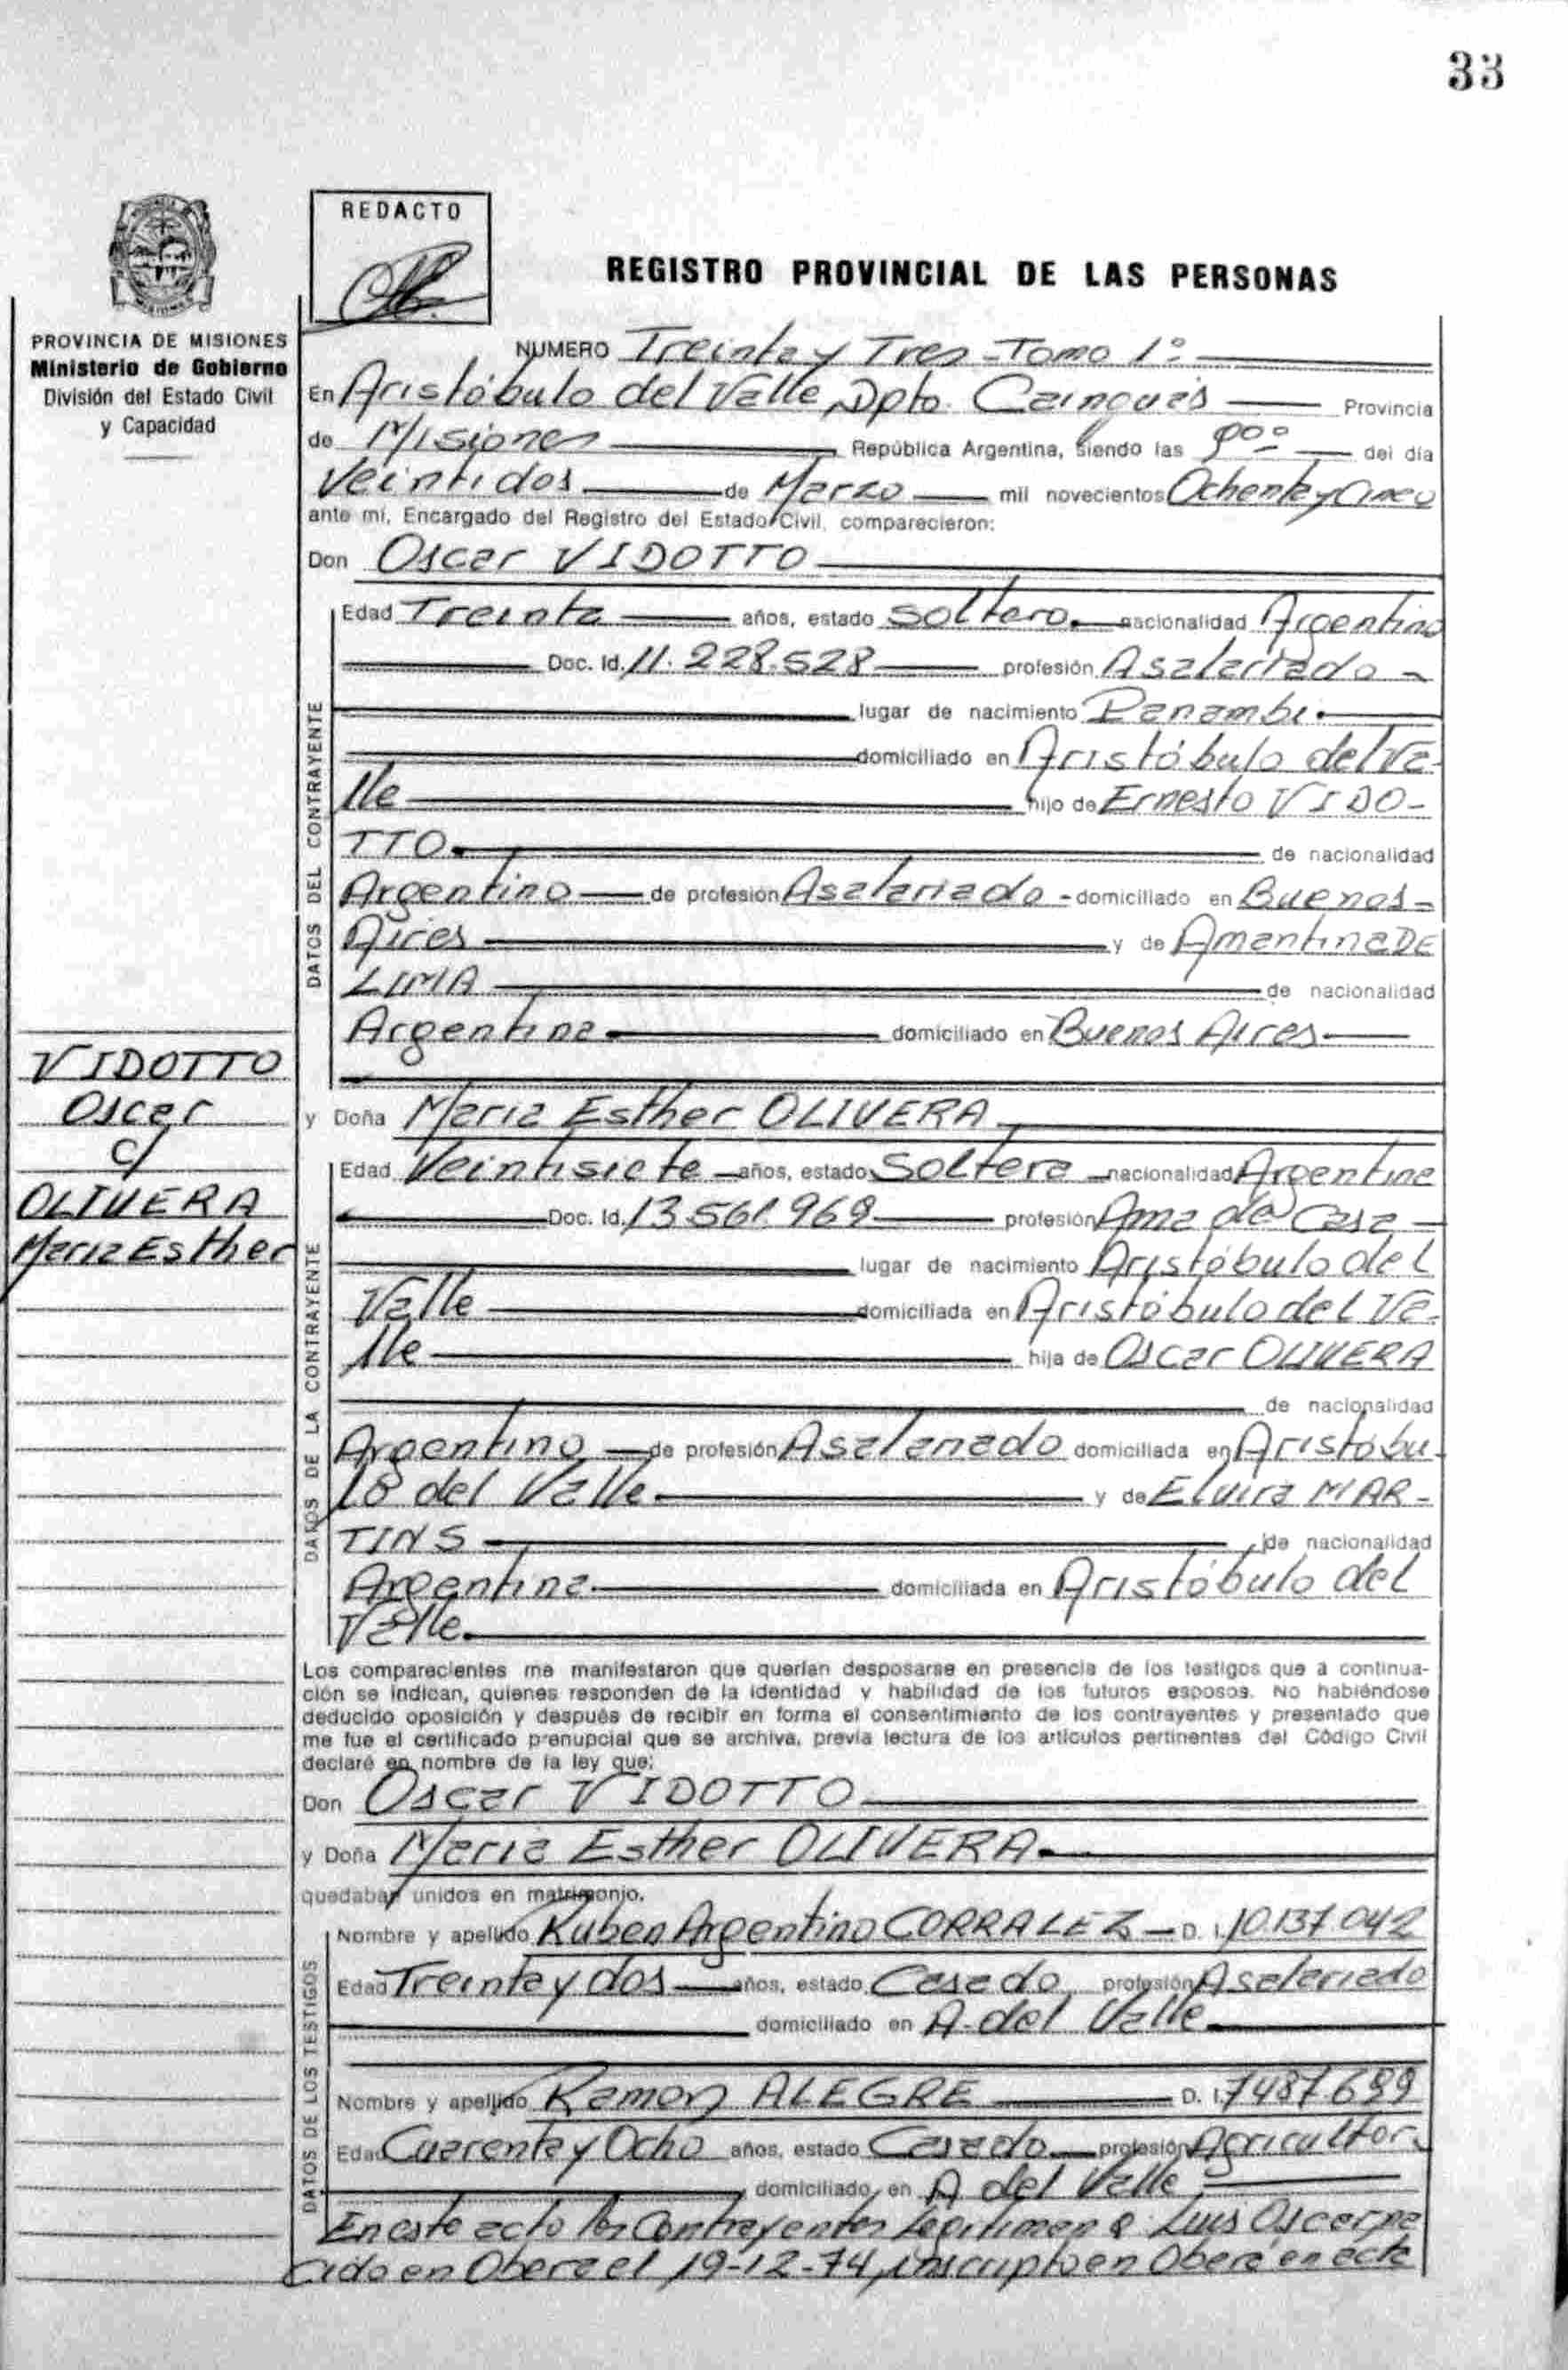 33
REDACTO
REGISTRO PROVINCIAL DE LAS PERSONAS
PROVINCIA DE MISIONES
Ministerio de Gobierno
División del Estado Civil
y Capacidad
NUMERO Treinta y Tres - Tomo 1º
En Aristóbulo del Valle, Dpto. Cainguás Provincia
de Misiones República Argentina, siendo las del día
Veintidos de Marzo mil novecientos Ochenta y Cinco
ante mí, Encargado del Registro del Estado Civil, comparecieron:
Don Oscar VIDOTTO
DATOS DEL CONTRAYENTE
Edad Treinta años, estado soltero nacionalidad Argentino
Doc. Id. 11.228.528 profesión Asalariado -
lugar de nacimiento Panambi.
domiciliado en Aristóbulo del Va-
lle hijo de Ernesto VIDO-
TTO. de nacionalidad
Argentino de profesión Asalariado - domiciliado en Buenos-
Aires y de Amantina DE
LIMA de nacionalidad
Argentina domiciliado en Buenos Aires
VIDOTTO
Oscar
c/
OLIVERA
Maria Esther
y Doña Maria Esther OLIVERA
DATOS DE LA CONTRAYENTE
Edad Veintisiete años, estado Soltera nacionalidad Argentina
Doc. Id. 13.561.969 profesión Ama de Casa
lugar de nacimiento Aristóbulo del
Valle domiciliada en Aristóbulo del Va-
lle hija de Oscar OLIVERA
de nacionalidad
Argentino de profesión Asalariado domiciliada en Aristóbu-
lo del Valle y de Elvira MAR-
TINS de nacionalidad
Argentina domiciliada en Aristóbulo del
Valle.
Los comparecientes me manifestaron que querían desposarse en presencia de los testigos que a continua-
ción se indican, quienes responden de la identidad y habilidad de los futuros esposos. No habiéndose
deducido oposición y después de recibir en forma el consentimiento de los contrayentes y presentado que
me fue el certificado prenupcial que se archiva, previa lectura de los artículos pertinentes del Código Civil
declaré en nombre de la ley que:
Don Oscar VIDOTTO
y Doña Maria Esther OLIVERA
quedaban unidos en matrimonio.
DATOS DE LOS TESTIGOS
Nombre y apellido Ruben Argentino CORRALEZ D. I. 10.137.042
Edad Treinta y dos años, estado Casado profesión Asalariado
domiciliado en A. del Valle
Nombre y apellido Ramon ALEGRE D. I. 7487.699
Edad Cuarenta y Ocho años, estado Casado profesión Agricultor.
domiciliado en A del Valle
En este acto los Contrayentes Legitiman a: Luis Oscar na
cido en Obera el 19-12-74, inscripto en Oberá en acta